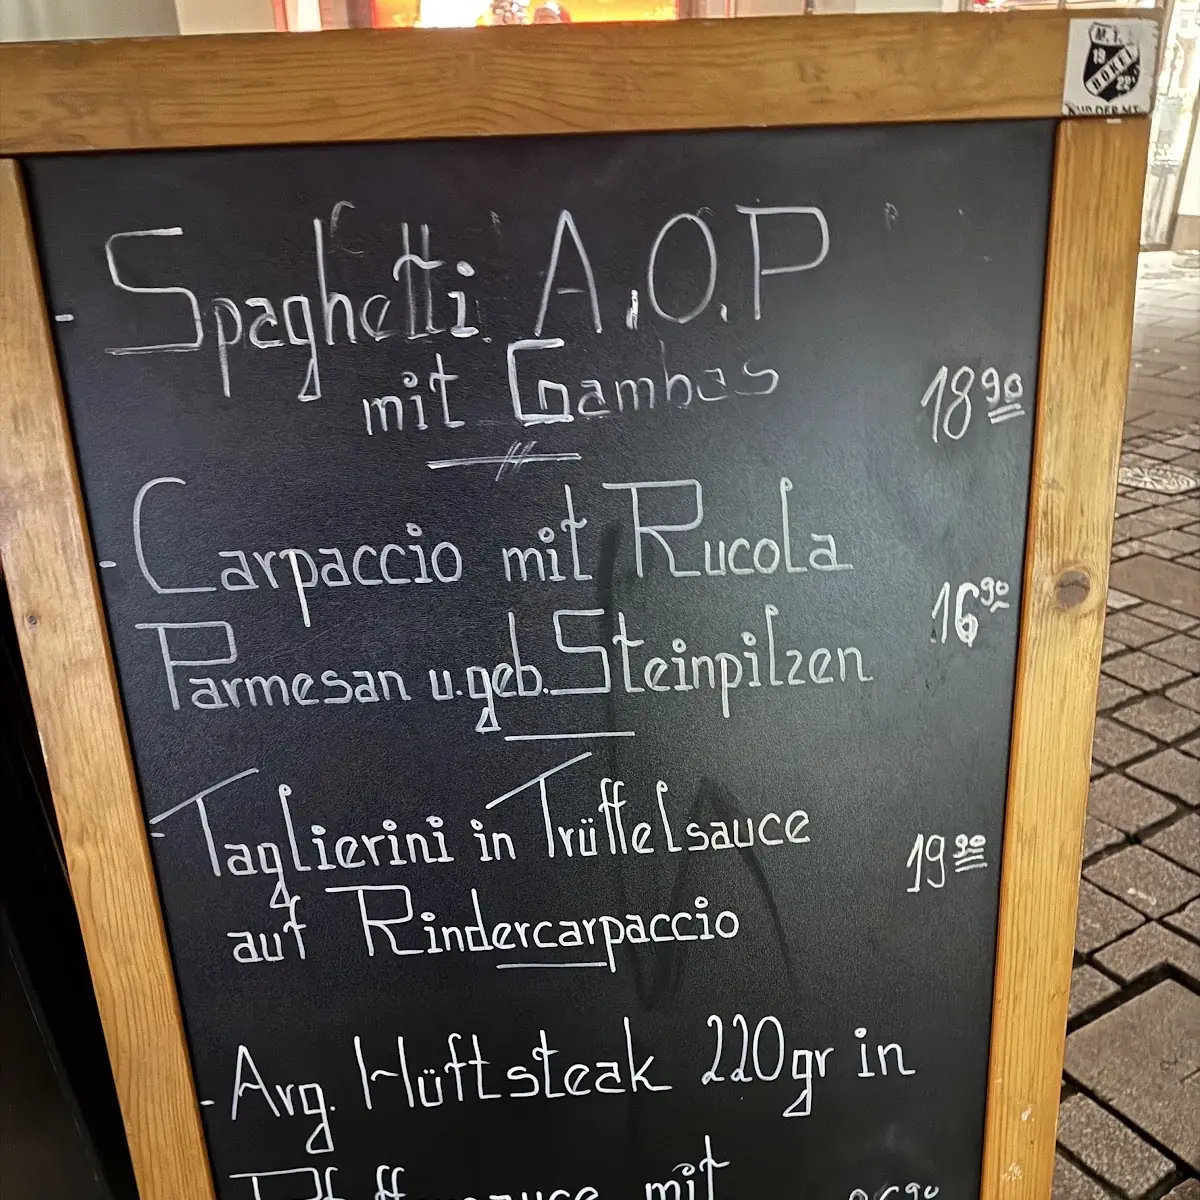 M.T.
19
BOKEL
22
- Spaghetti A.O.P
mit Gambas
18 90
- Carpaccio mit Rucola
Parmesan u.geb. Steinpilzen
16 90
- Taglierini in Trüffelsauce
auf Rindercarpaccio
19 90
- Arg. Hüftsteak 220gr in
mit